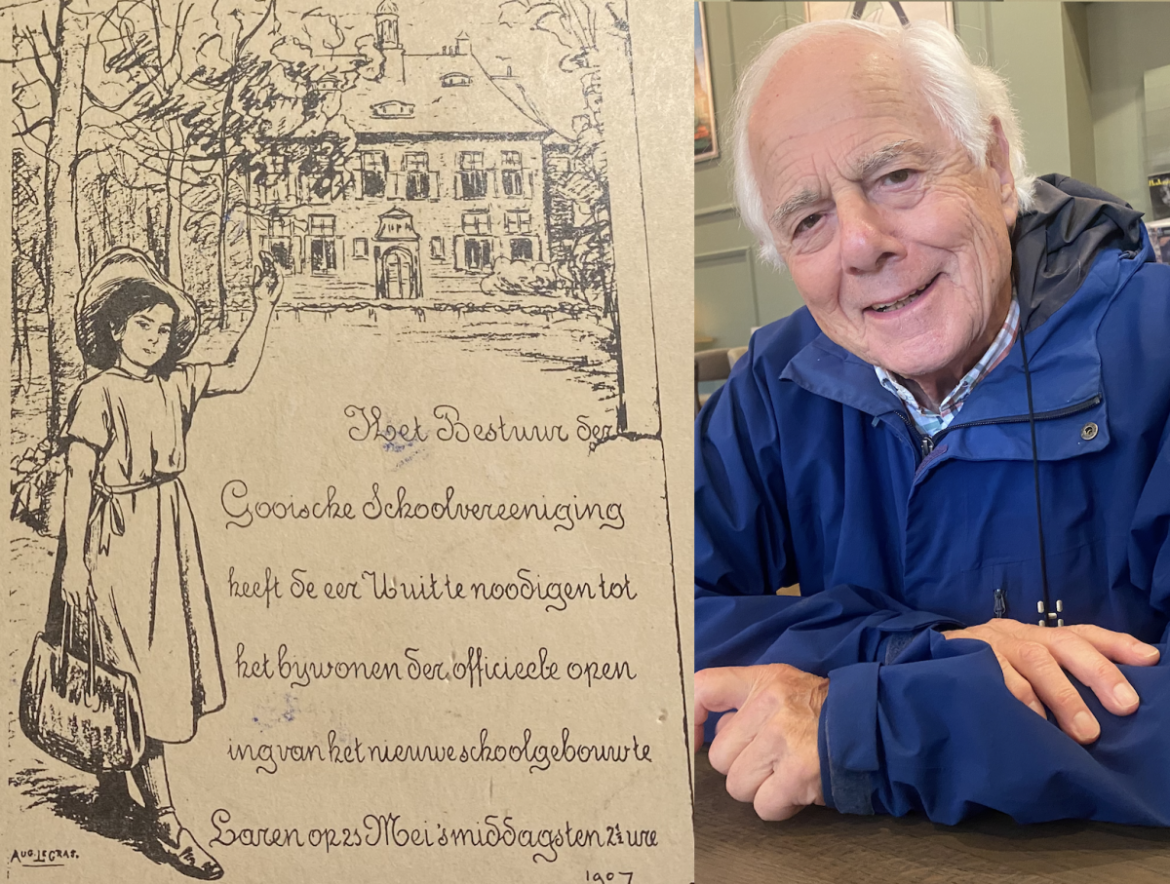 Het Bestuur der
Gooische Schoolvereeniging
heeft de eer U uit te noodigen tot
het bywonen der officieele open
ing van het nieuwe schoolgebouw te
Laren op 25 Mei 's middags ten 2½ ure
1907
AUG. LE GRAS.